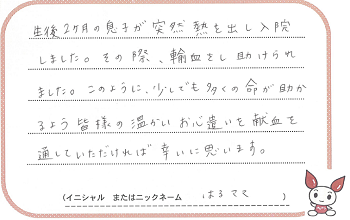 生後2ヶ月の息子が突然熱を出し入院
しました。その際、輸血をし助けられ
ました。このように、少しでも多くの命が助か
るよう皆様の温かいお心遣いを献血を
通していただければ幸いに思います。
(イニシャル またはニックネーム はるママ )